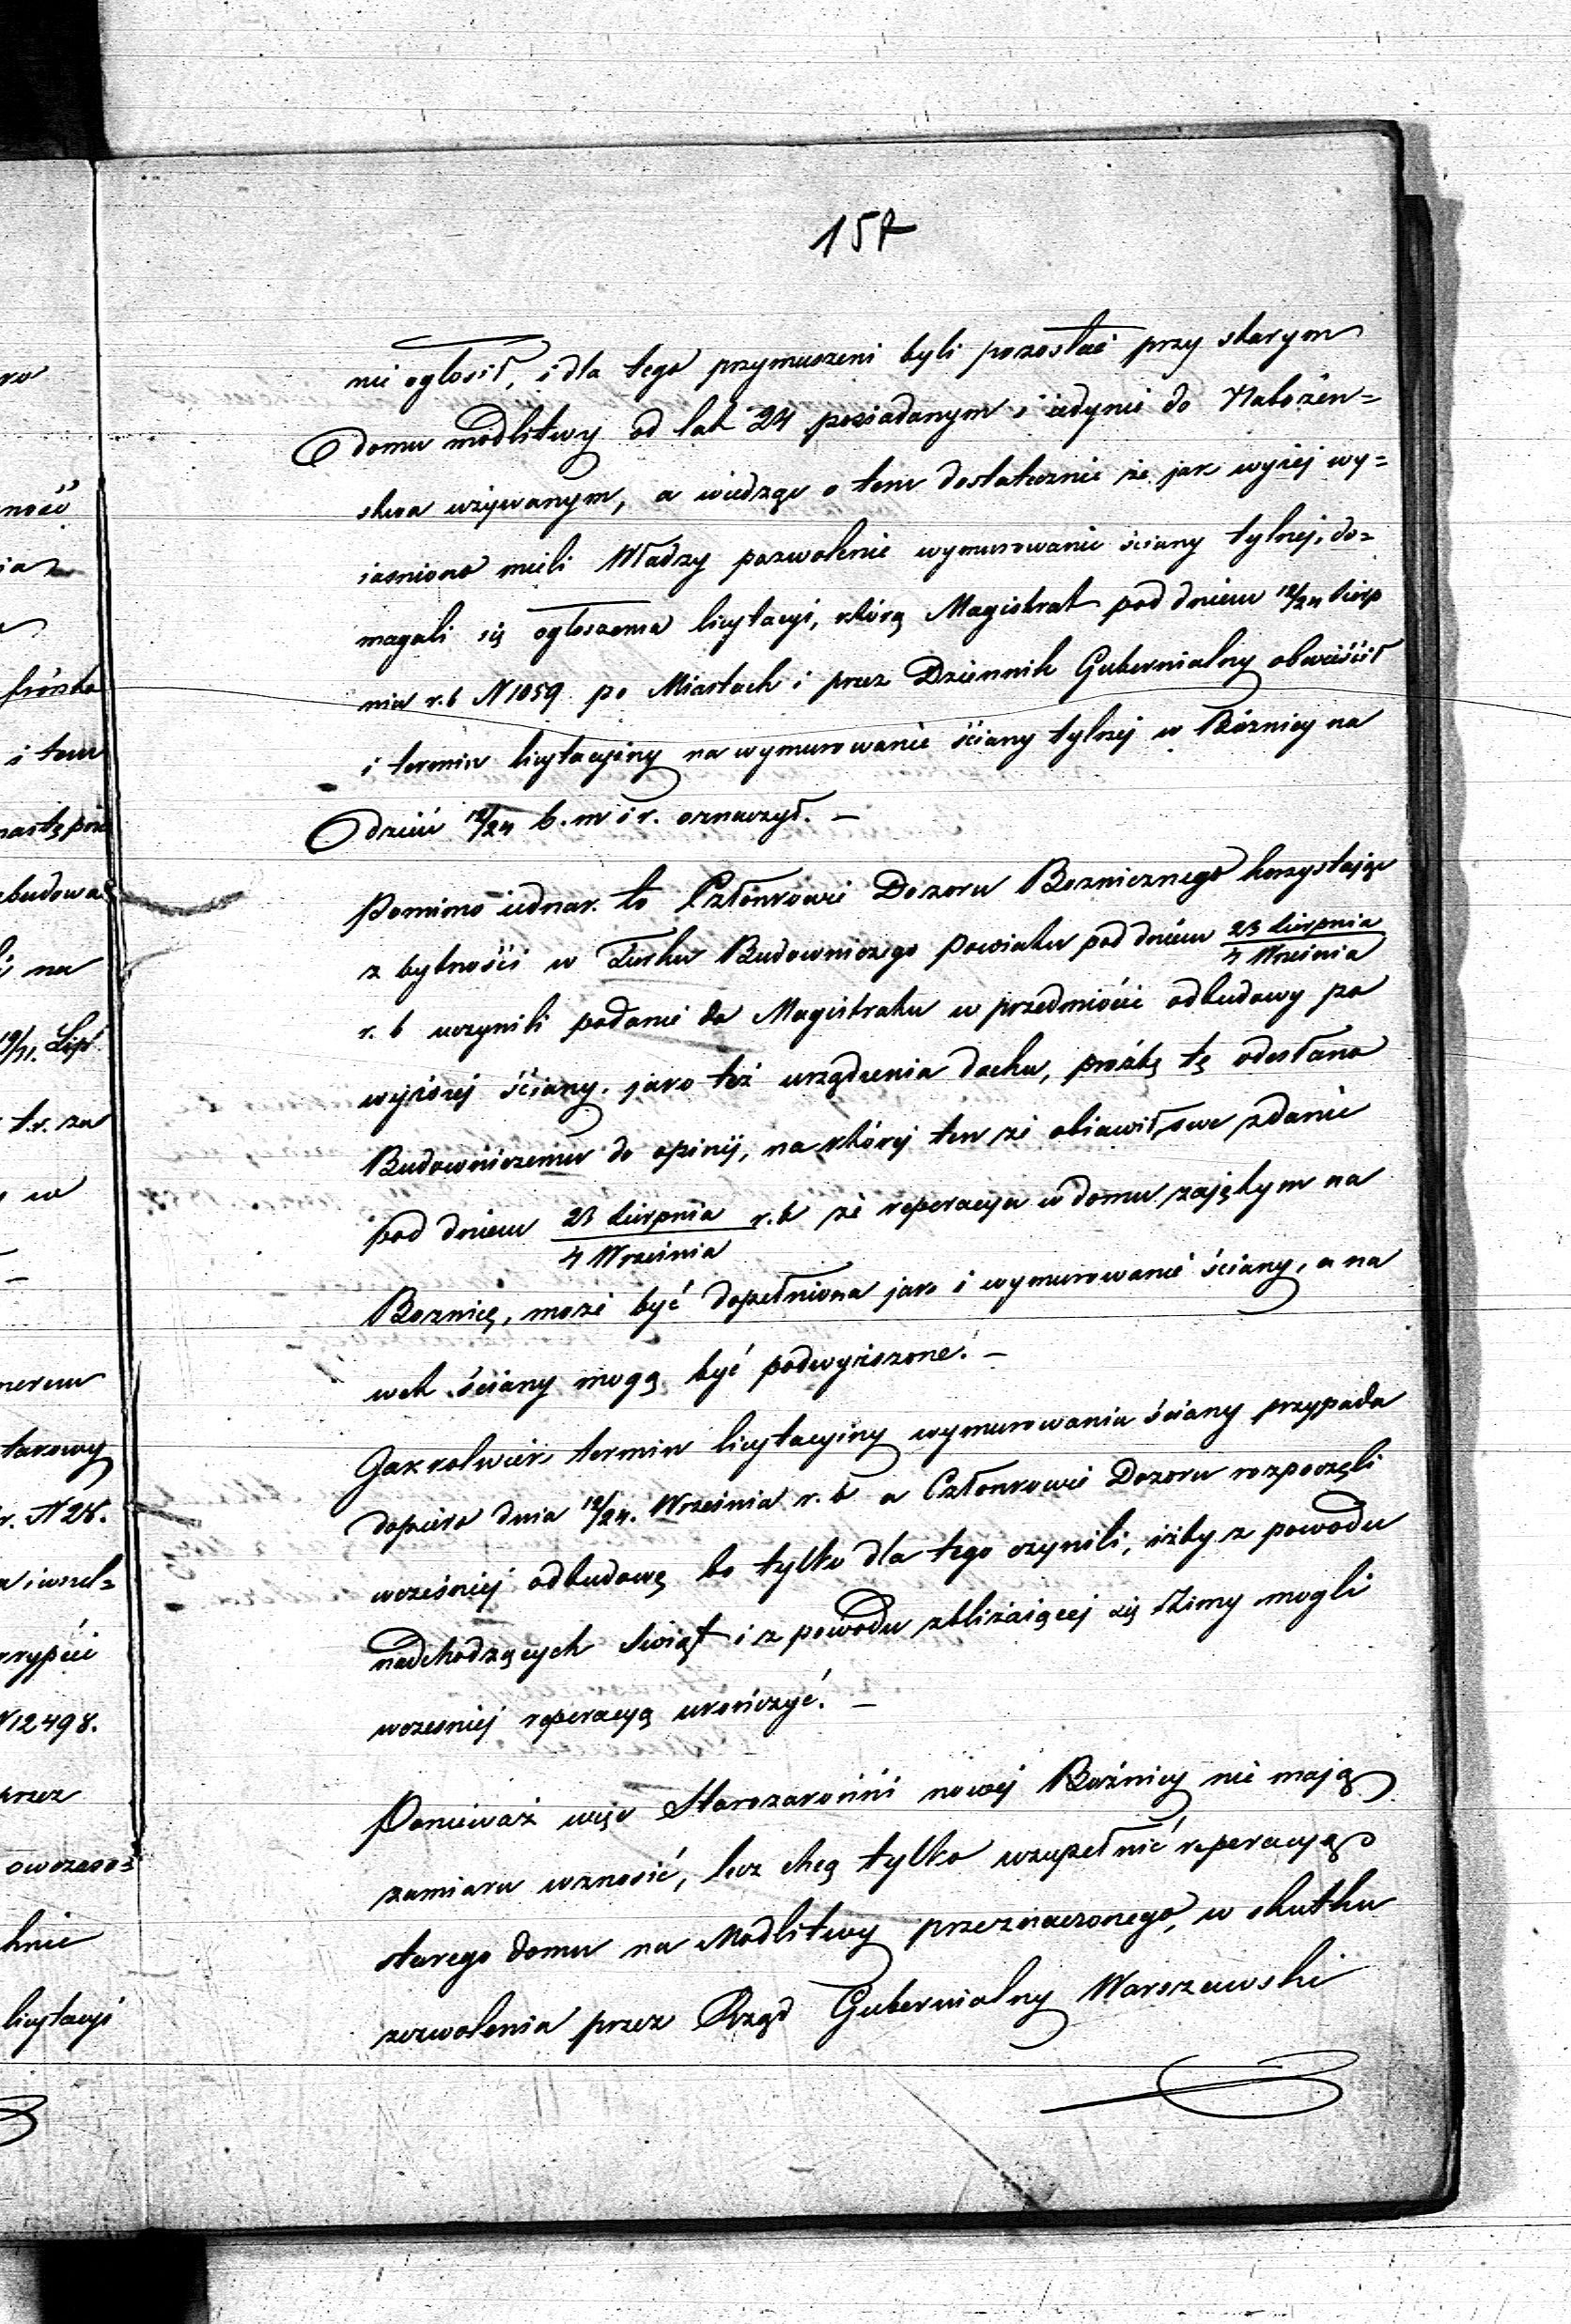 157
nie ogłosił, i dla tego przymuszeni byli pozostać przy starym
domu modlitwy od lat 24 posiadanym i iedynie do Nabożeń=
stwa używanym, a wiedząc o tem dostatecznie że jak wyżej wy=
iasniono mieli Władzy pozwolenie wymurowanie ściany tylnej, do=
magali się ogłoszenia licytacyi, którą Magistrat pod dniem 12/24 Sierp
nia r. b N 1059 po Miastach i przez Dziennik Gubernialny obwieścił
i termin licytacyiny na wymurowanie ściany tylnej w Bóżnicy na
dzień 12/24 b. m i r. oznaczył. –
Pomimo iednak to Członkowie Dozoru Boznicznego korzystając
z bytności w Turku Budowniczego Powiatu pod dniem 23 Sierpnia / 4 Wrześnie
r. b uczynili podanie do Magistratu w przedmiocie odbudowy po
wyższej ściany. jako też urządzenia dachu, prożbę tę odesłano
Budowniczemu do opinij, na której ten że obiawił swe zdanie
pod dniem 23 Sierpnia / 4 Września r. b że reperacya w domu zajętym na
Boznicę, może być dopełniona jako i wymurowanie ściany, a na
wet ściany mogą być podwyższone. –
Jakkolwiek termin licytacyiny wymurowania ściany przypada
dopiero dnia 12/24. Września r. b a Członkowie Dozoru rozpoczęli
wcześniej odbudowę to tylko dla tego czynili, iżby z powodu
nadchodzących Swiąt i z powodu zbliżaiącej się Zimy mogli
wczesniej reperacyą ukończyć. –
Ponieważ więc Starozakonni nowej Bóżnicy nie mają
zamiaru wznosić, lecz chcą tylko uzupełnić reperacyą
starego domu na Modlitwy przeznaczonego, w skutku
zezwolenia przez Rząd Gubernialny Warszawski